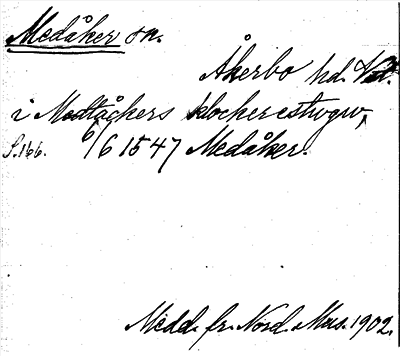 Medåker sn.
Åkerbo hd. Vstm.
i Medtåckers klockerestwgw,
S. 166. 6/6 1547 Medåker.
Medd. fr. Nord. Mus. 1902.